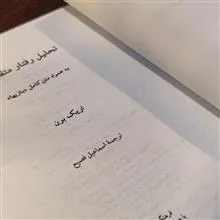 تحلیل رفتار متقا
به همراه متن کامل «بازیها»
اریک برن
ترجمهٔ اسماعیل فصیح
فرهنگ